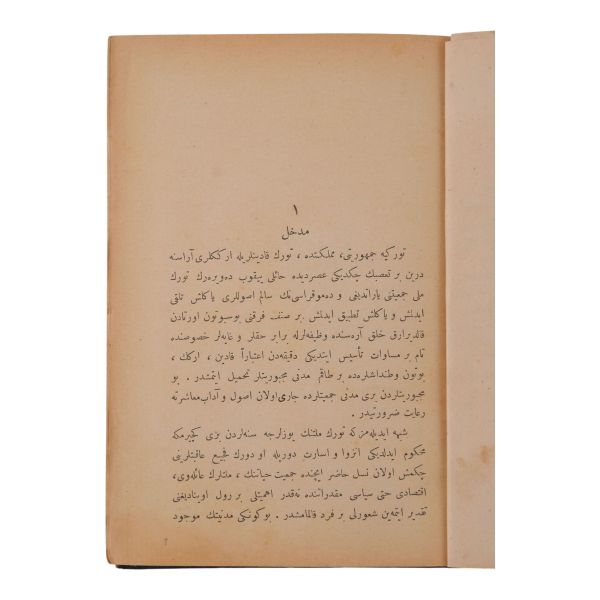 ١
مدخل
توركیه جمهوریتی، مملكتنده، تورك قادینلریله ارككلری آراسنه
درین بر تعصبك چكدیكی عصردیده حائلی ییقوب ده‌ویره‌رك تورك
ملی جمعیتنی یاراتدیغی و ده‌موقراسی‌نك سالم اصوللری یاكلش تلقی
ایدلمش و یاكلش تطبیق ایدلمش بر صنف فرقنی بوسبوتون اورتادن
قالدیرارق خلق آره‌سنده وظیفه‌لرله برابر حقلر و غایه‌لر خصوصنده
تام بر مساوات تأسیس ایتدیكی دقیقه‌دن اعتباراً قادین، اركك،
بوتون وطنداشلره‌ده بر طاقم مدنی مجبوریتلر تحمیل ایتمشدر. بو
مجبوریتلردن بری مدنی جمعیتلرده جاری‌اولان اصول و آداب‌معاشرته
رعایت ضرورتیدر.
شبهه ایدیله‌مزكه تورك ملتنك یوزلرجه سنه‌لردن بری كچیرمكه
محكوم ایدلدیكی انزوا و اسارت دوریله او دورك فجیع عاقبتلرینی
چكمش اولان نسل حاضر ایچنده جمعیت حیاتنك، ملتلرك عائله‌وی،
اقتصادی حتی سیاسی مقدراتنده نه‌قدر اهمیتلی بر رول اوینادیغنی
تقدیر ایتمه‌ین شعورلی بر فرد قالمامشدر. بوكونكی مدنیتك موجود